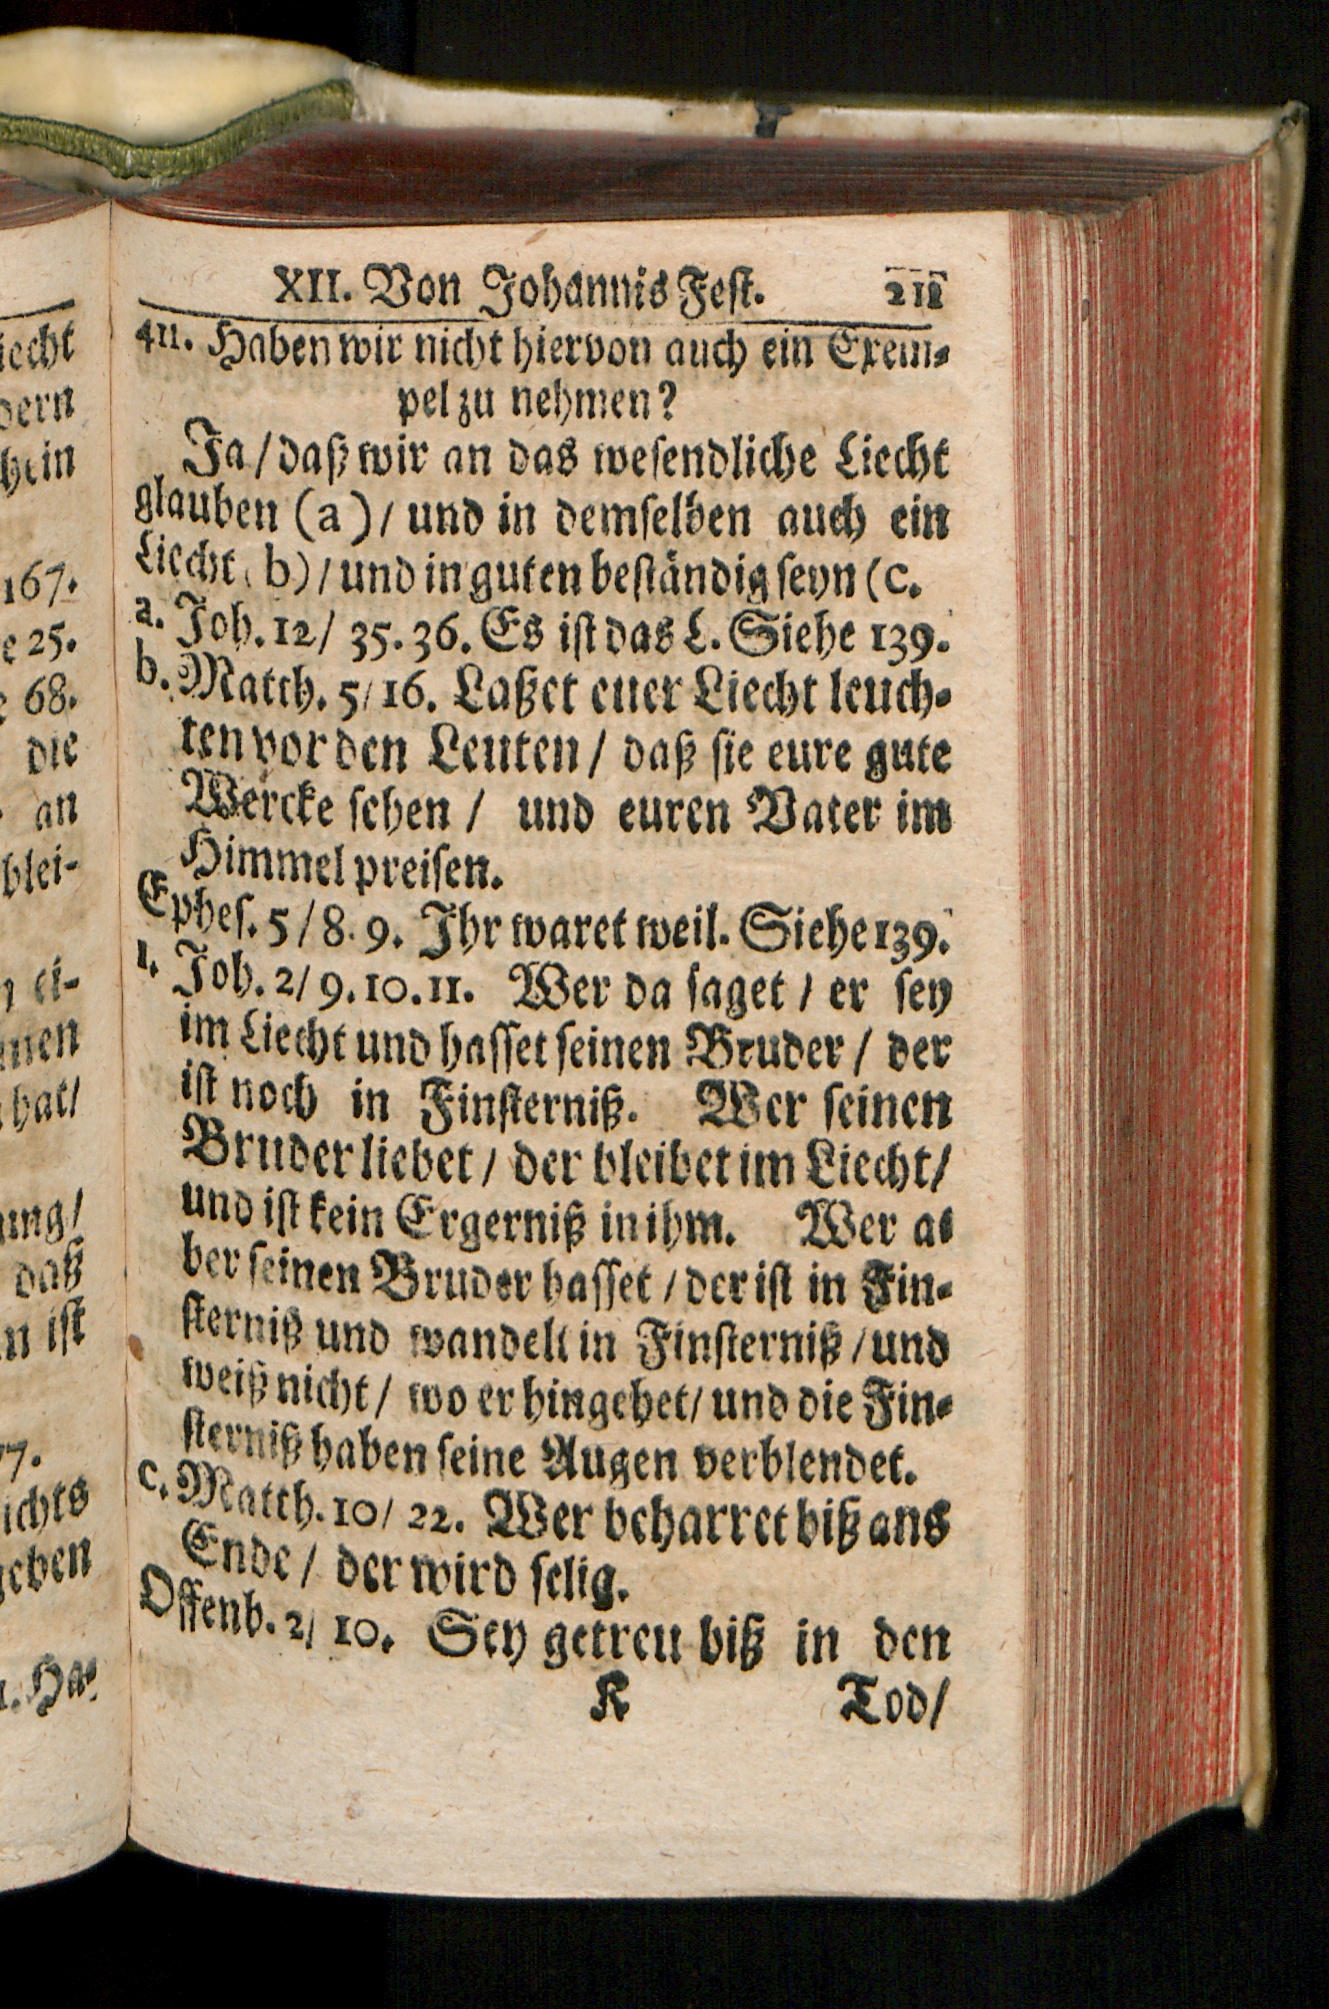 XII. Von Johannis Fest. 211
411. Haben wir nicht hiervon auch ein Exem-
pel zu nehmen?
Ja / daß wir an das wesendliche Liecht
glauben (a) / und in demselben auch ein
Liecht (b) / und in guten beständig seyn (c.
a. Joh. 12/ 35. 36. Es ist das L. Siehe 139.
b. Matth. 5/16. Laßet euer Liecht leuch-
ten vor den Leuten / daß sie eure gute
Wercke sehen / und euren Vater im
Himmel preisen.
Ephes. 5/8. 9. Ihr waret weil. Siehe 139.
1. Joh. 2/ 9. 10. 11. Wer da saget / er sey
im Liecht und hasset seinen Bruder / der
ist noch in Finsterniß. Wer seinen
Bruder liebet / der bleibet im Liecht/
und ist kein Ergerniß in ihm. Wer a-
ber seinen Bruder hasset / der ist in Fin-
sterniß und wandelt in Finsterniß / und
weiß nicht / wo er hingehet / und die Fin-
sterniß haben seine Augen verblendet.
c. Matth. 10/ 22. Wer beharret biß ans
Ende / der wird selig.
Offenb. 2/ 10. Sey getreu biß in den
K Tod/
167.
e 25.
68.
die
an
blei-
daß
ist